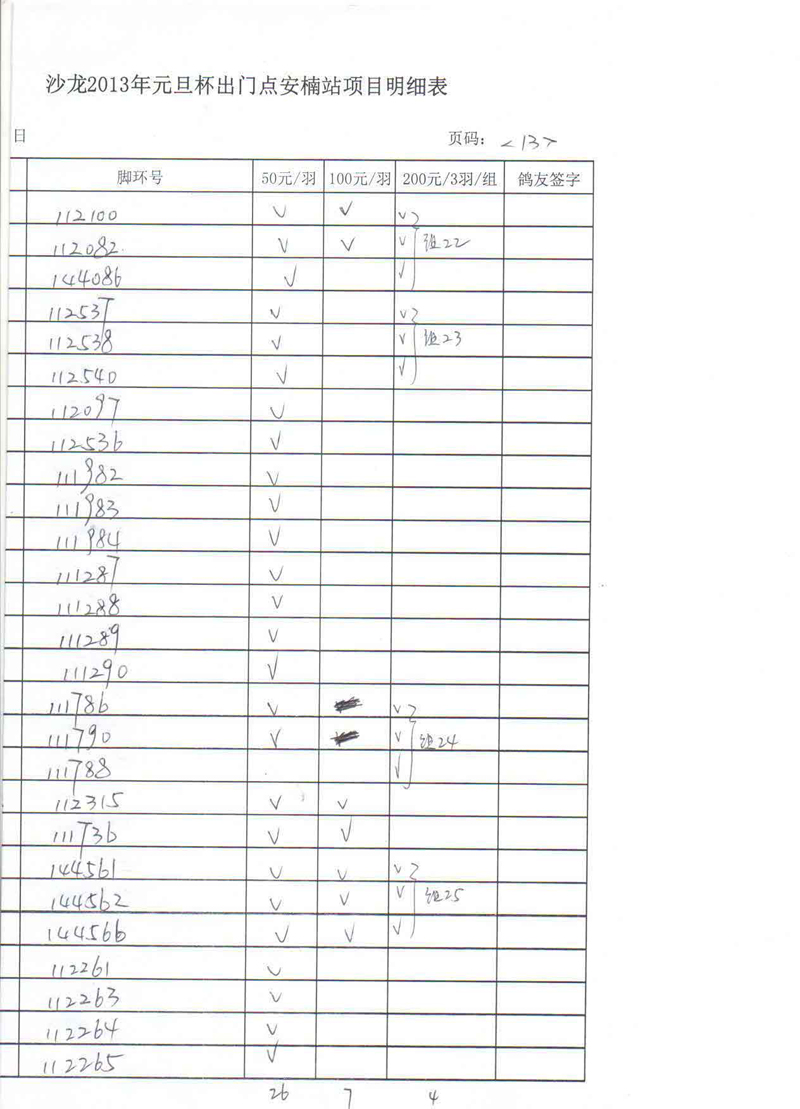 沙龙2013年元旦杯出门点安楠站项目明细表
日 页码: <13>
脚环号 50元/羽 100元/羽 200元/3羽/组 鸽友签字
112100 √ √ √
112082 √ √ √ 组22
144086 √ √
112537 √ √
112538 √ √ 组23
112540 √ √
112097 √
112536 √
111982 √
111983 √
111984 √
111287 √
111288 √
111289 √
111290 √
111786 √ √
111790 √ √ 组24
111788 √
112315 √ √
111736 √ √
144561 √ √ √
144562 √ √ √ 组25
144566 √ √ √
112261 √
112263 √
112264 √
112265 √
26 7 4